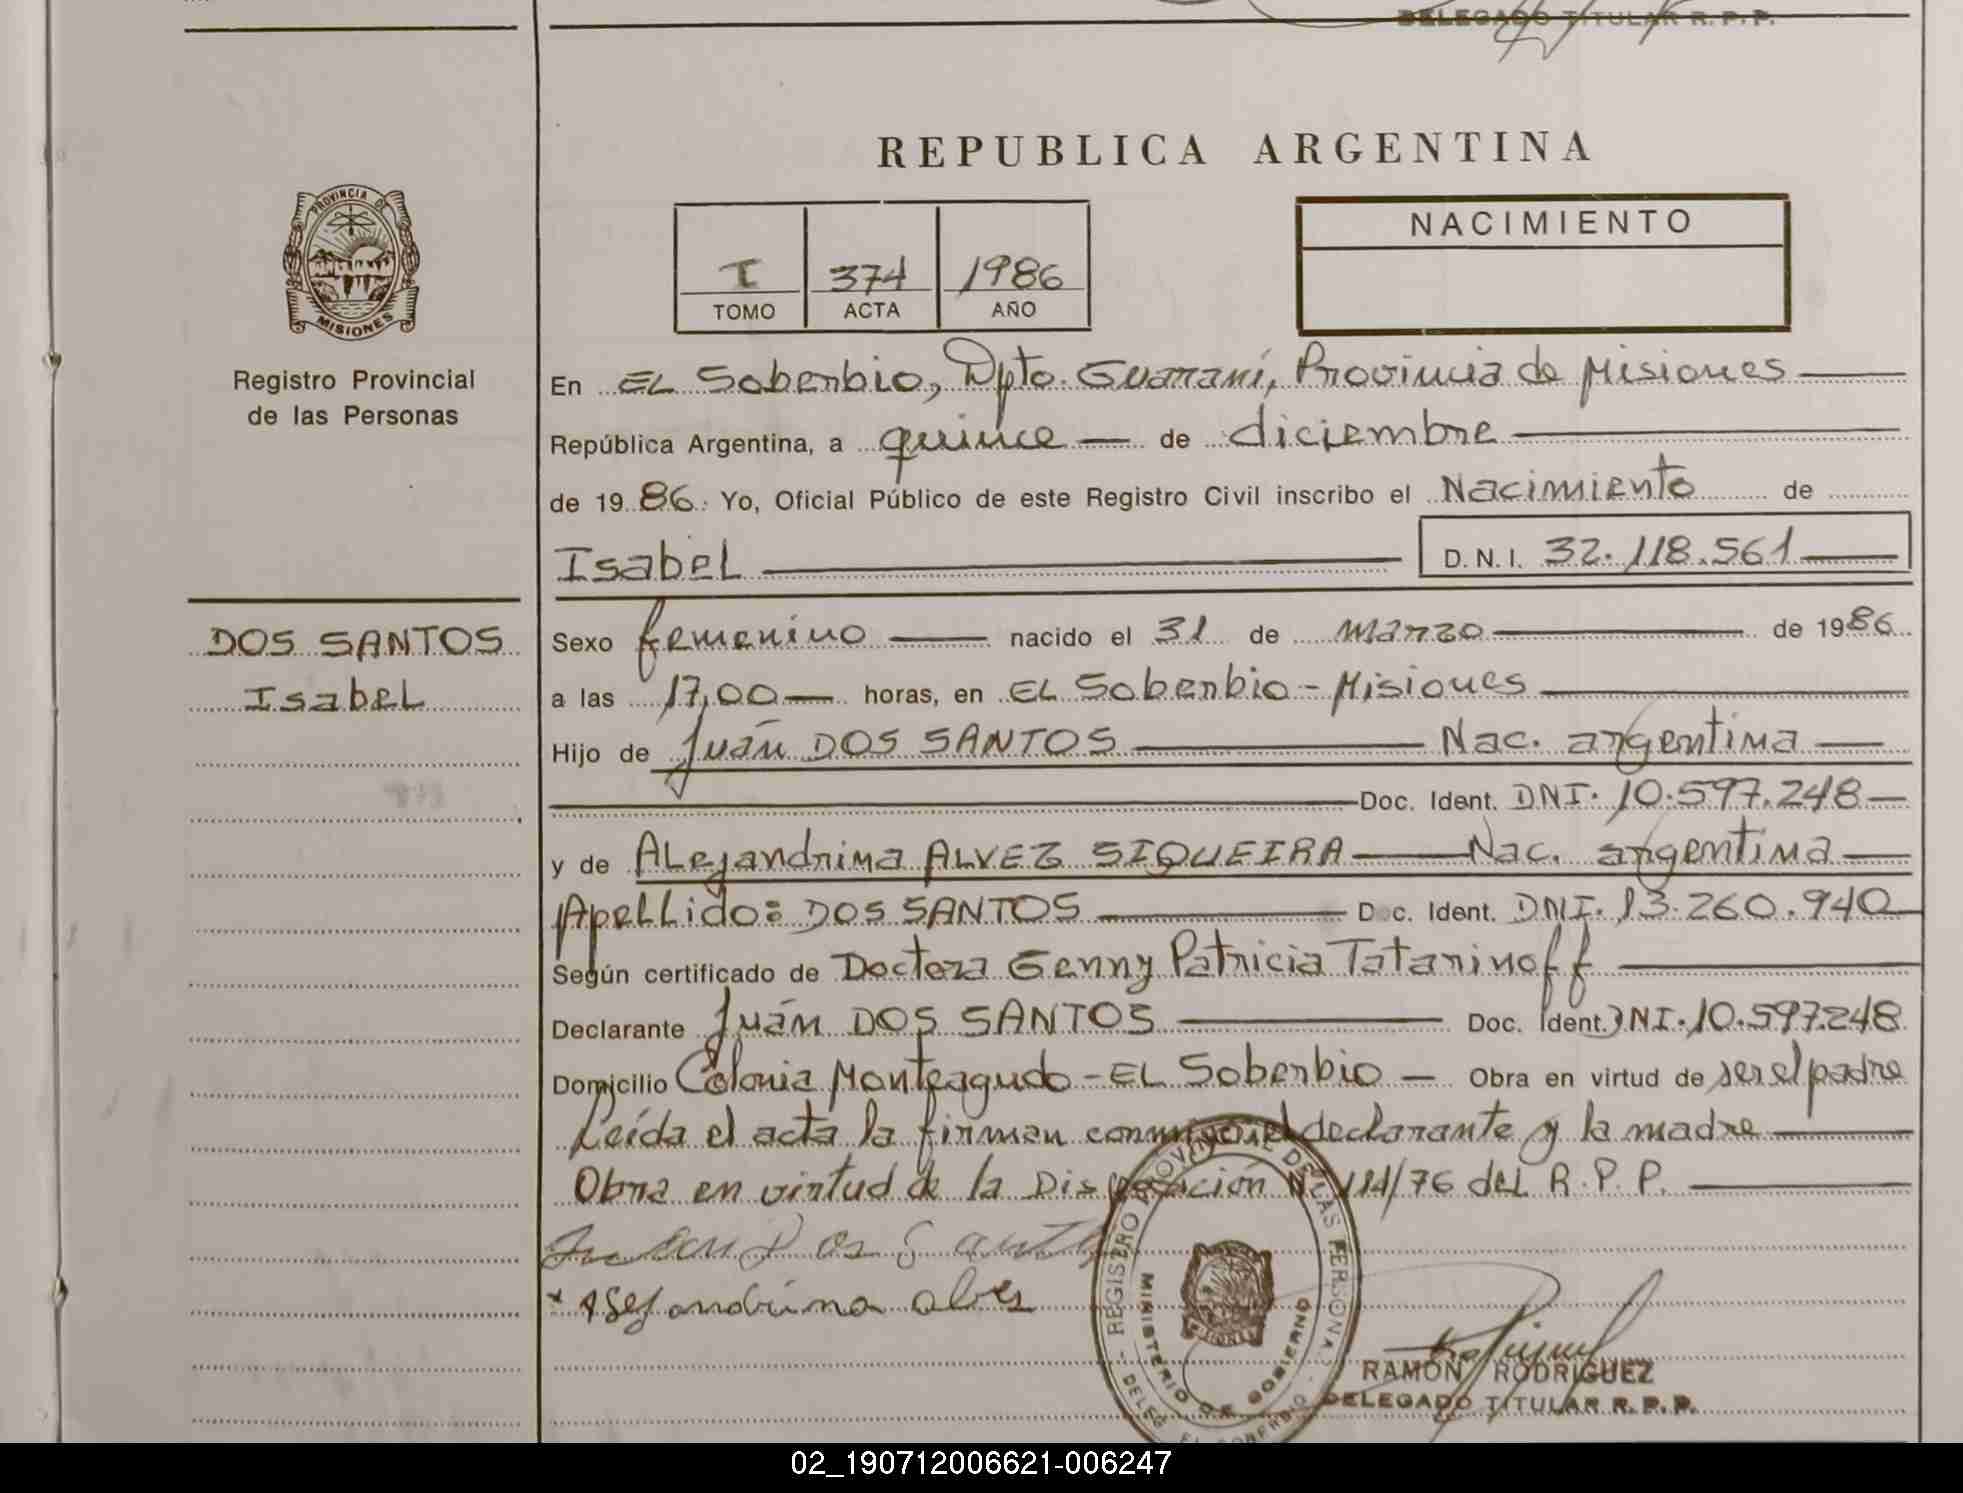 DELEGADO TITULAR R. P. P.
PROVINCIA DE
MISIONES
Registro Provincial
de las Personas
DOS SANTOS
Isabel
REPUBLICA ARGENTINA
I 374 1986
TOMO ACTA AÑO
NACIMIENTO
En EL Soberbio, Dpto. Guaraní, Provincia de Misiones
República Argentina, a quince de diciembre
de 1986. Yo, Oficial Público de este Registro Civil inscribo el Nacimiento de
Isabel D. N. I. 32.118.561
Sexo femenino nacido el 31 de marzo de 1986
a las 17,00 horas, en EL Soberbio - Misiones
Hijo de Juán DOS SANTOS Nac. argentina
Doc. Ident. DNI. 10.597.248
y de ALejandrina ALVEZ SIQUEIRA Nac. argentina
Apellido: DOS SANTOS Doc. Ident. DNI. 13.260.940
Según certificado de Doctora Genny Patricia Tatarinoff
Declarante Juán DOS SANTOS Doc. Ident. DNI. 10.597.248
Domicilio Colonia Monteagudo - EL Soberbio Obra en virtud de ser el padre
Leída el acta la firman conmigo el declarante y la madre
Obra en virtud de la Disposición Nº 114/76 del R. P. P.
Juan Dos Santos
REGISTRO PROVINCIAL DE LAS PERSONAS
MINISTERIO DE GOBIERNO
MISIONES
- DELEG. EL SOBERBIO -
RAMON RODRIGUEZ
DELEGADO TITULAR R. P. P.
02_190712006621-006247